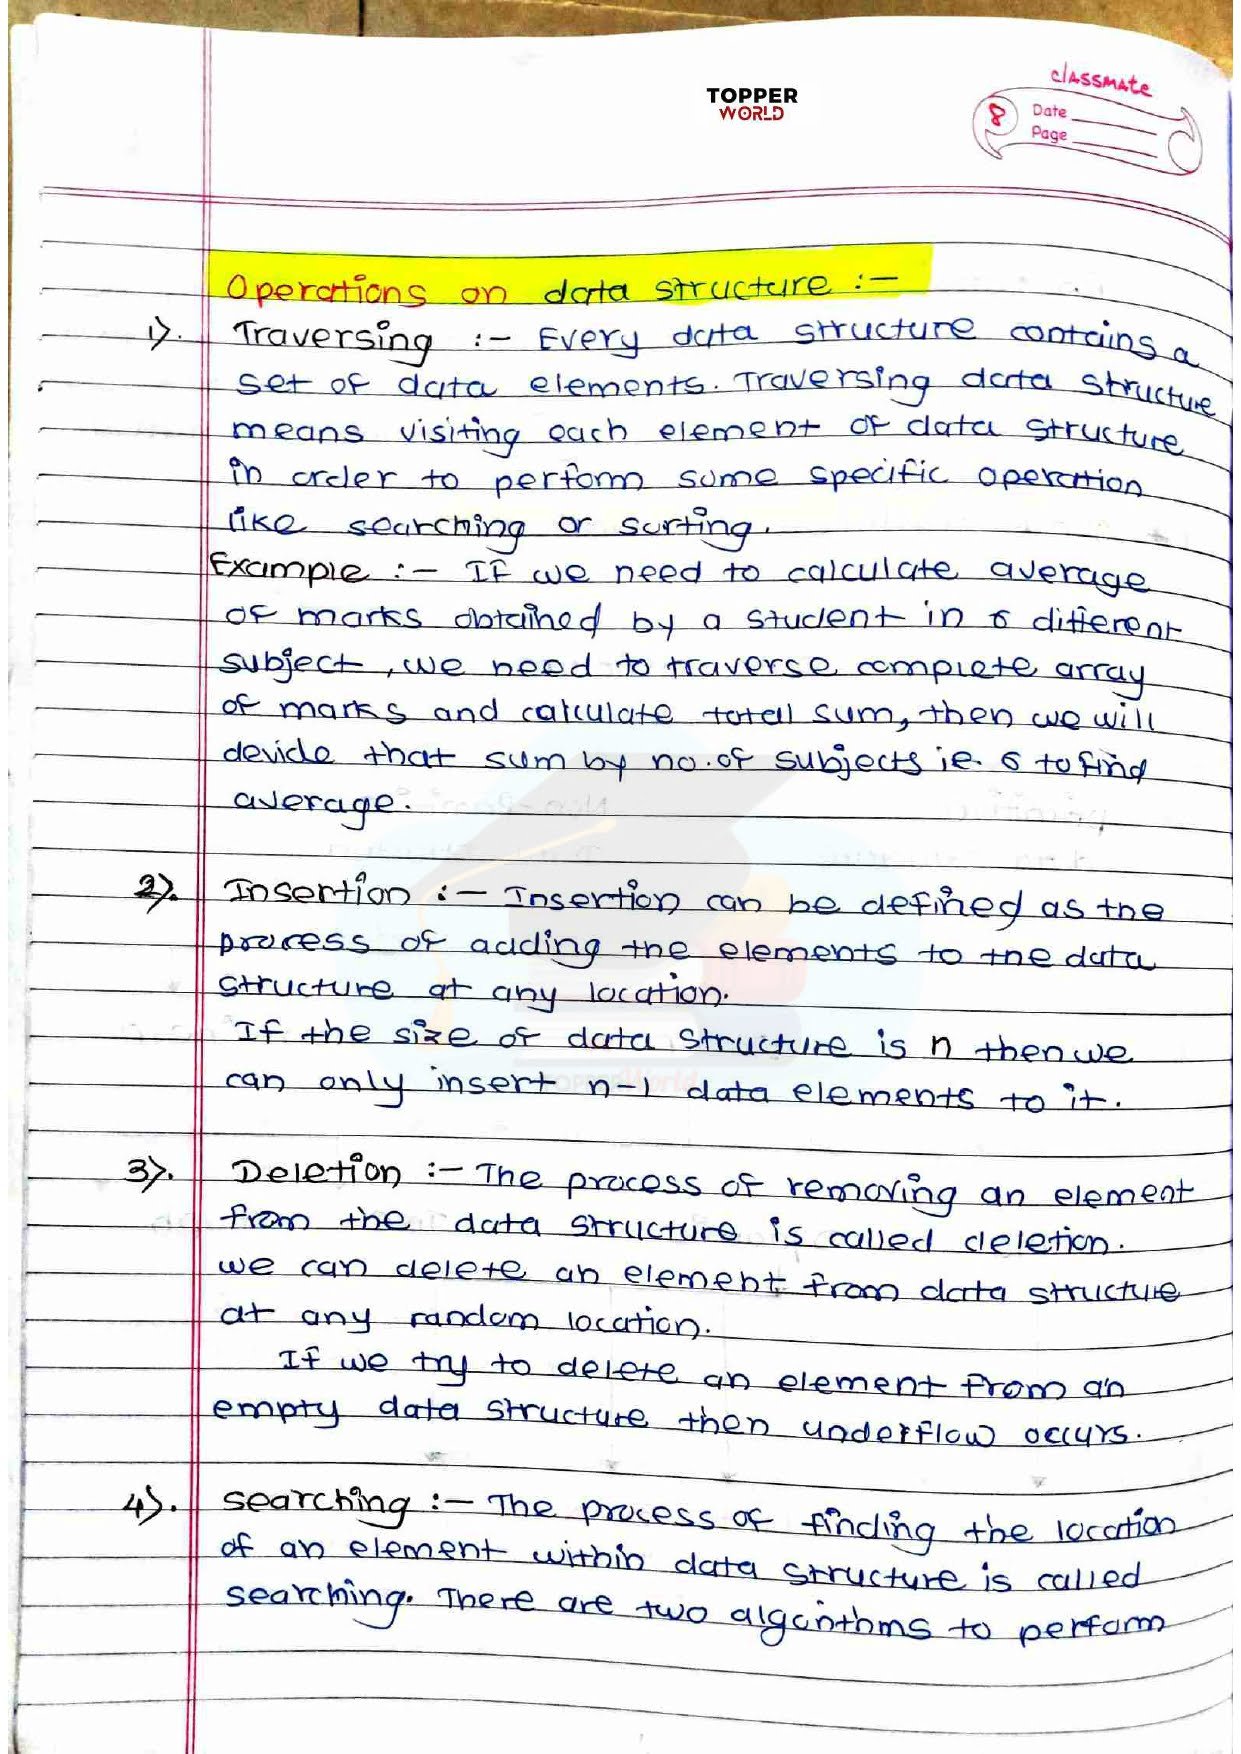 classmate
TOPPER
WORLD
8
Date
Page
Operations on data structure :-
1). Traversing :- Every data structure contains a
set of data elements. Traversing data structure
means visiting each element of data structure
in order to perform some specific operation
like searching or sorting.
Example :- If we need to calculate average
of marks obtained by a student in 6 different
subject, we need to traverse complete array
of marks and calculate total sum, then we will
devide that sum by no. of subjects ie. 6 to find
average.
2). Insertion :- Insertion can be defined as the
process of adding the elements to the data
structure at any location.
If the size of data structure is n then we
can only insert n-1 data elements to it.
3). Deletion :- The process of removing an element
from the data structure is called deletion.
we can delete an element from data structure
at any random location.
If we try to delete an element from an
empty data structure then underflow occurs.
4). searching :- The process of finding the location
of an element within data structure is called
searching. There are two algorithms to perform